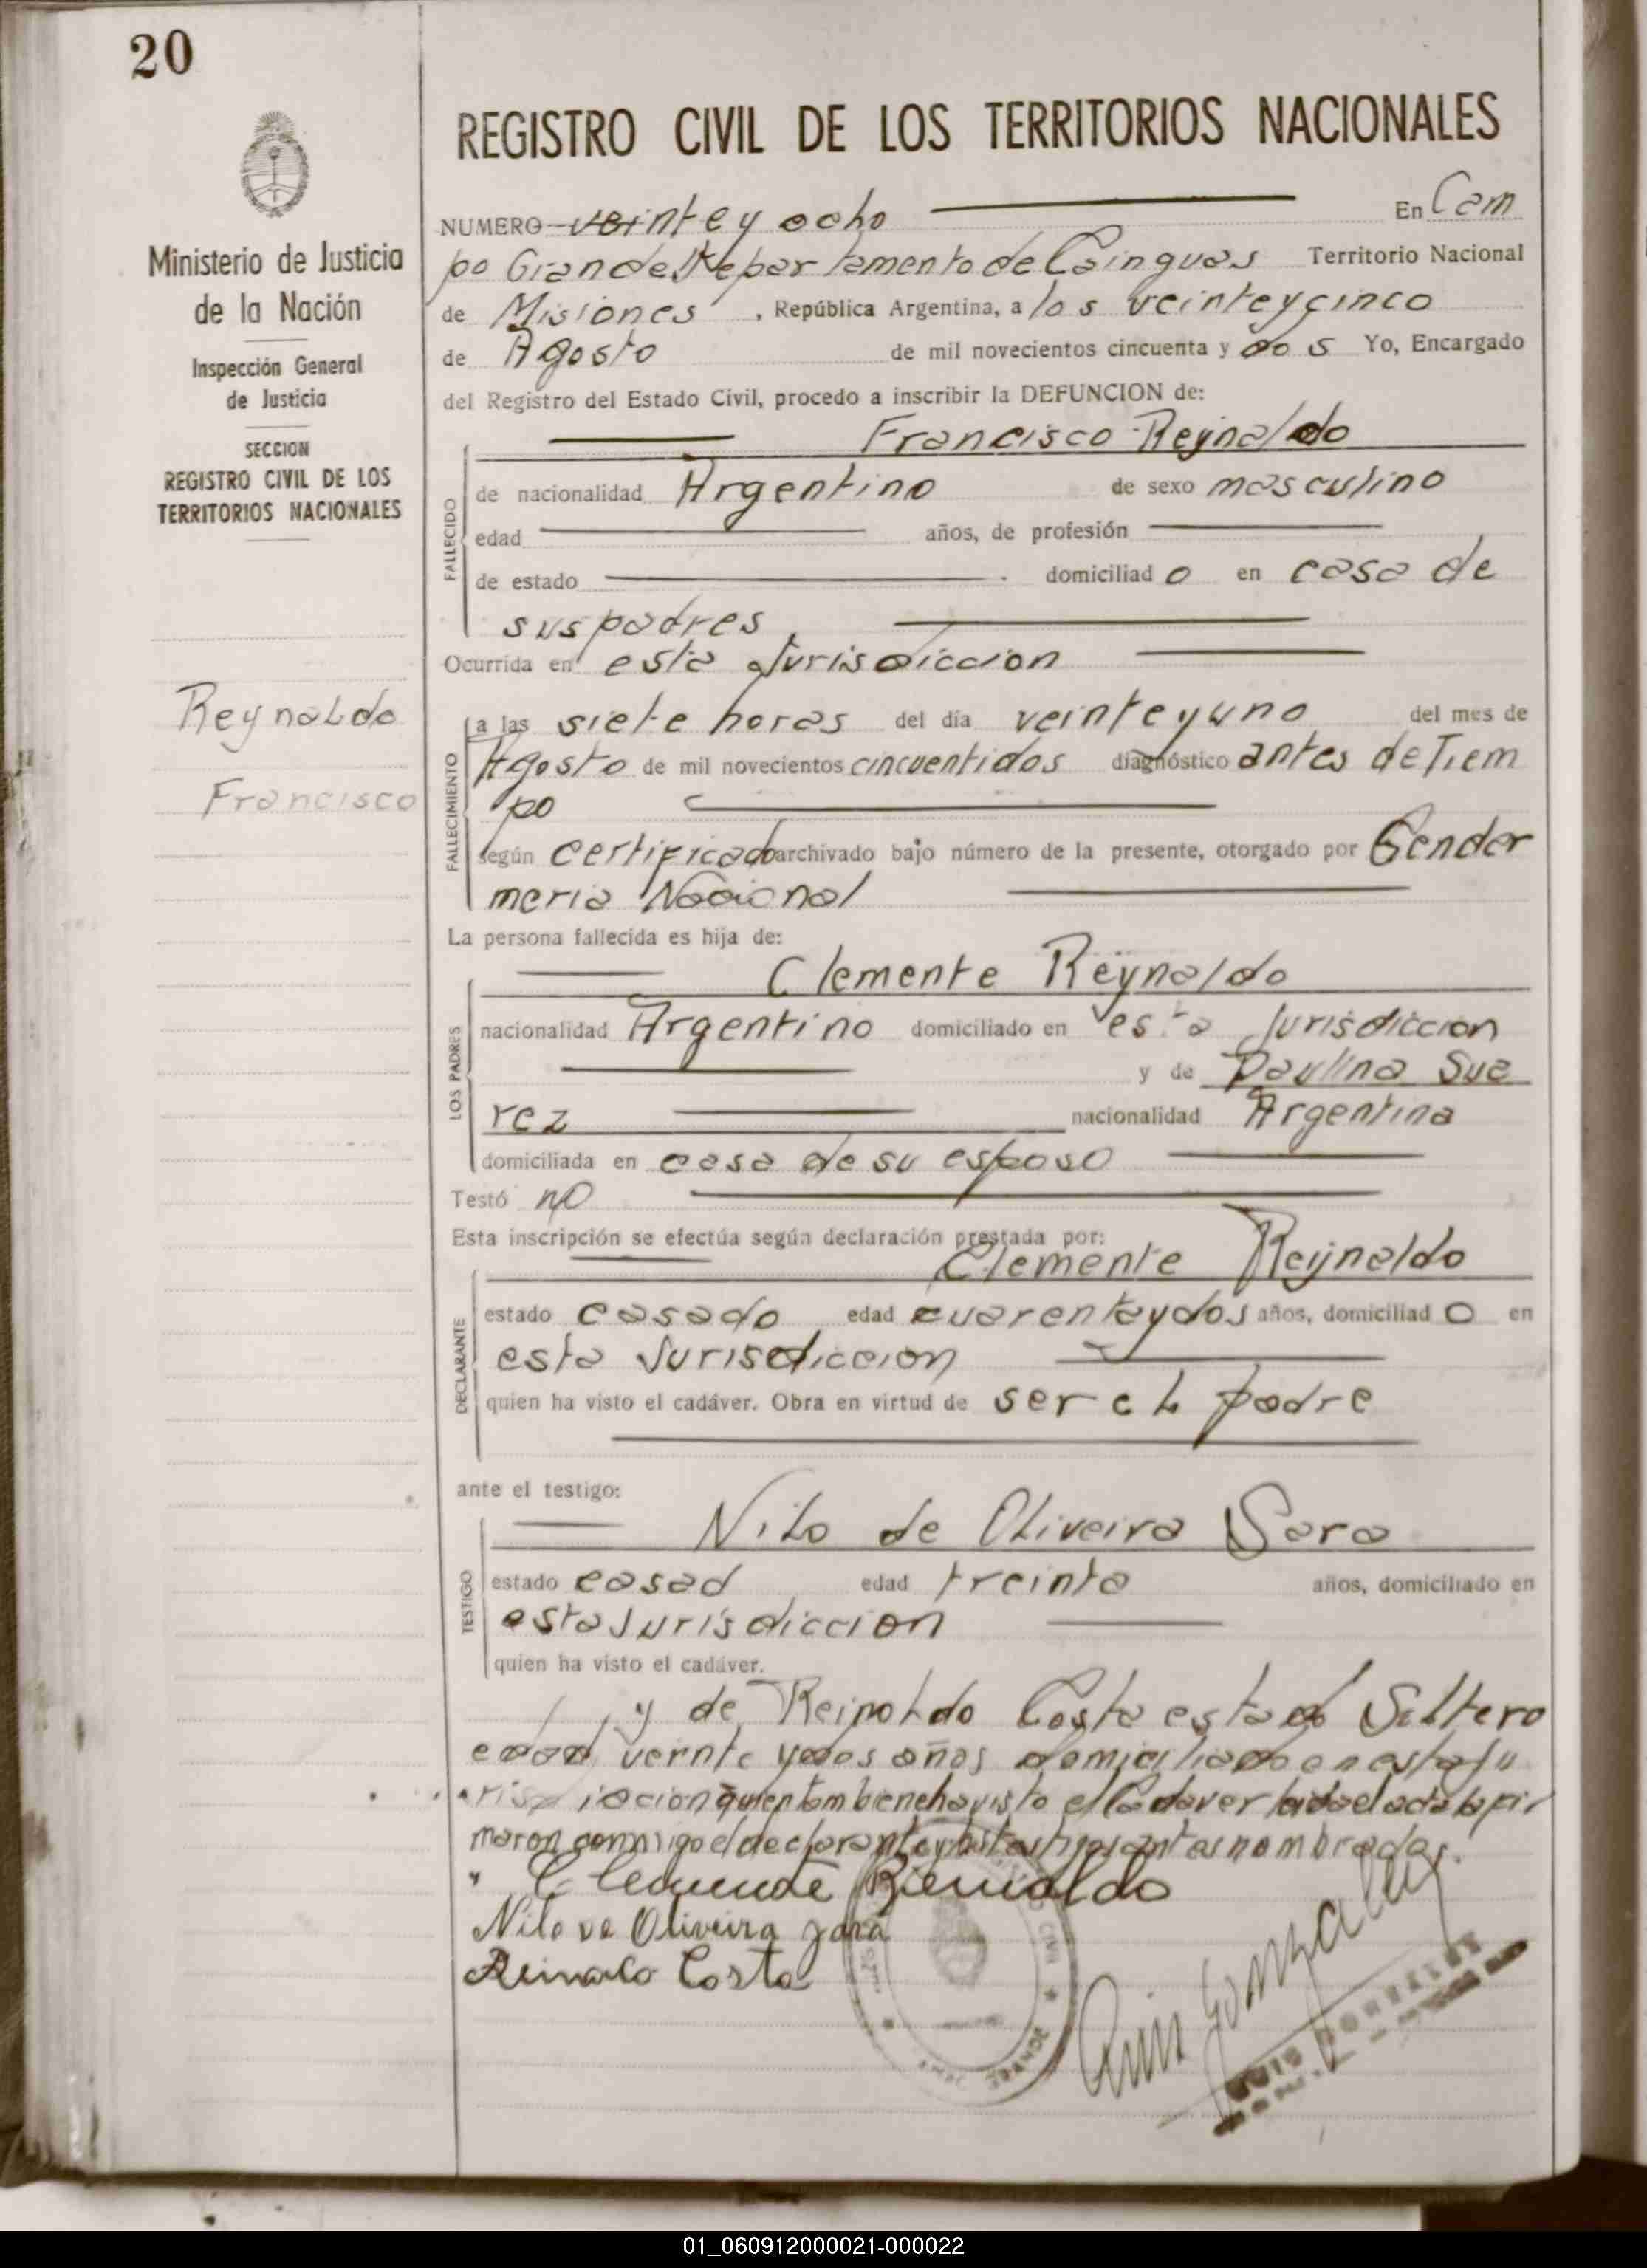 20
Ministerio de Justicia
de la Nación
Inspección General
de Justicia
SECCION
REGISTRO CIVIL DE LOS
TERRITORIOS NACIONALES
Reynaldo
Francisco
REGISTRO CIVIL DE LOS TERRITORIOS NACIONALES
NUMERO veinte y ocho En Cam
po Grande Departamento de Cainguas Territorio Nacional
de Misiones, República Argentina, a los veinteycinco
de Agosto de mil novecientos cincuenta y dos Yo, Encargado
del Registro del Estado Civil, procedo a inscribir la DEFUNCION de:
Francisco Reynaldo
FALLECIDO
de nacionalidad Argentino de sexo masculino
edad años, de profesión
de estado domiciliado en casa de
sus padres
Ocurrida en esta Jurisdiccion
FALLECIMIENTO
a las siete horas del día veinteyuno del mes de
Agosto de mil novecientos cincuentidos diagnóstico antes de Tiem
po
según certificado archivado bajo número de la presente, otorgado por Gendar
meria Nacional
La persona fallecida es hija de:
Clemente Reynaldo
LOS PADRES
nacionalidad Argentino domiciliado en esta Jurisdiccion
y de Paulina Sua
rez nacionalidad Argentina
domiciliada en casa de su esposo
Testó no
Esta inscripción se efectúa según declaración prestada por:
Clemente Reynaldo
DECLARANTE
estado casado edad cuarentaydos años, domiciliado en
esta Jurisdiccion
quien ha visto el cadáver. Obra en virtud de ser el padre
ante el testigo:
Nilo de Oliveira Sara
TESTIGO
estado casad edad treinta años, domiciliado en
esta Jurisdiccion
quien ha visto el cadáver.
y de Reinoldo Costa estado Soltero
edad veinte ydos años domiciliado en esta Ju
risdiccion quien tambien ha visto el Cadaver leida el acta la fir
maron conmigo el declarante y los testigos antes nombrados.
Clemente Reinaldo
Nilo de Oliveira Jara
Reinaldo Costa
CIVIL
GRANDE
Luis Gonzalez
LUIS GONZALEZ
01_060912000021-000022